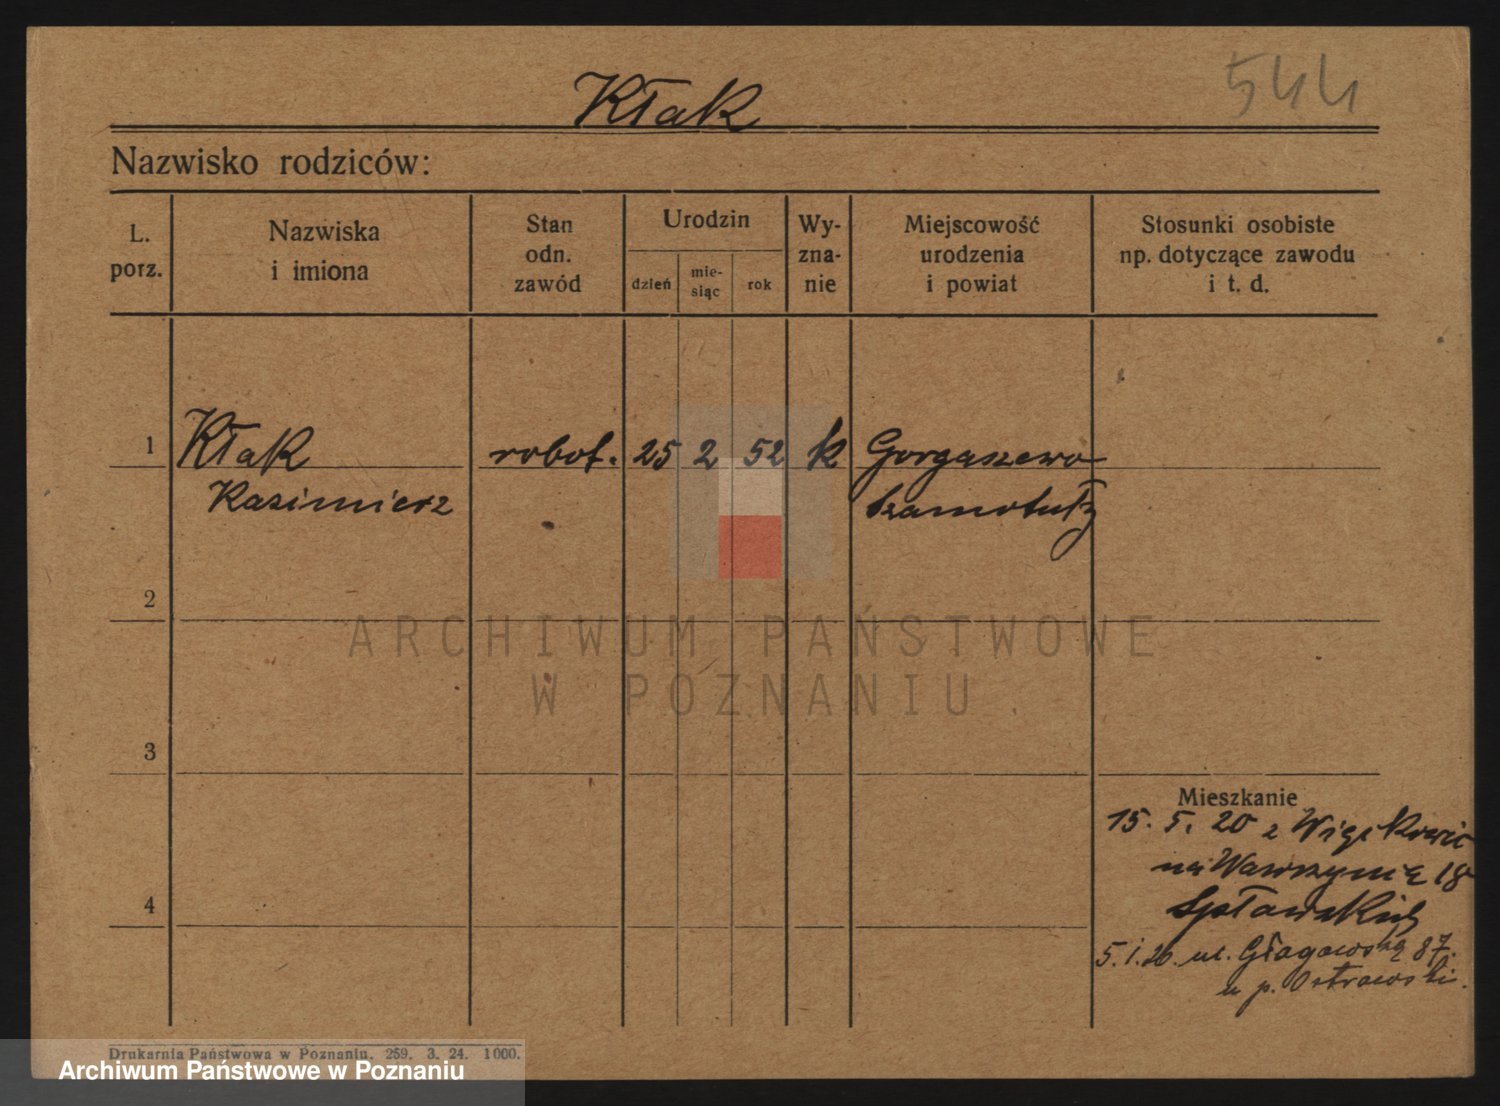 Kłak
544
Nazwisko rodziców:
L. porz.
Nazwiska i imiona
Stan odn. zawód
Urodzin
dzień
mie-siąc
rok
Wy-zna-nie
Miejscowość urodzenia i powiat
Stosunki osobiste np. dotyczące zawodu i t. d.
1 Kłak robot. 25 2 52 k Gorgaszewo
Kazimierz Szamotuły
2
ARCHIWUM PAŃSTWOWE
W POZNANIU
3
Mieszkanie
15. 5. 20 z
18
4
5. 1. 26. ul. Głogowska 87.
u p. Ostrowski.
Drukarnia Państwowa w Poznaniu. 259. 3. 24. 1000.
Archiwum Państwowe w Poznaniu